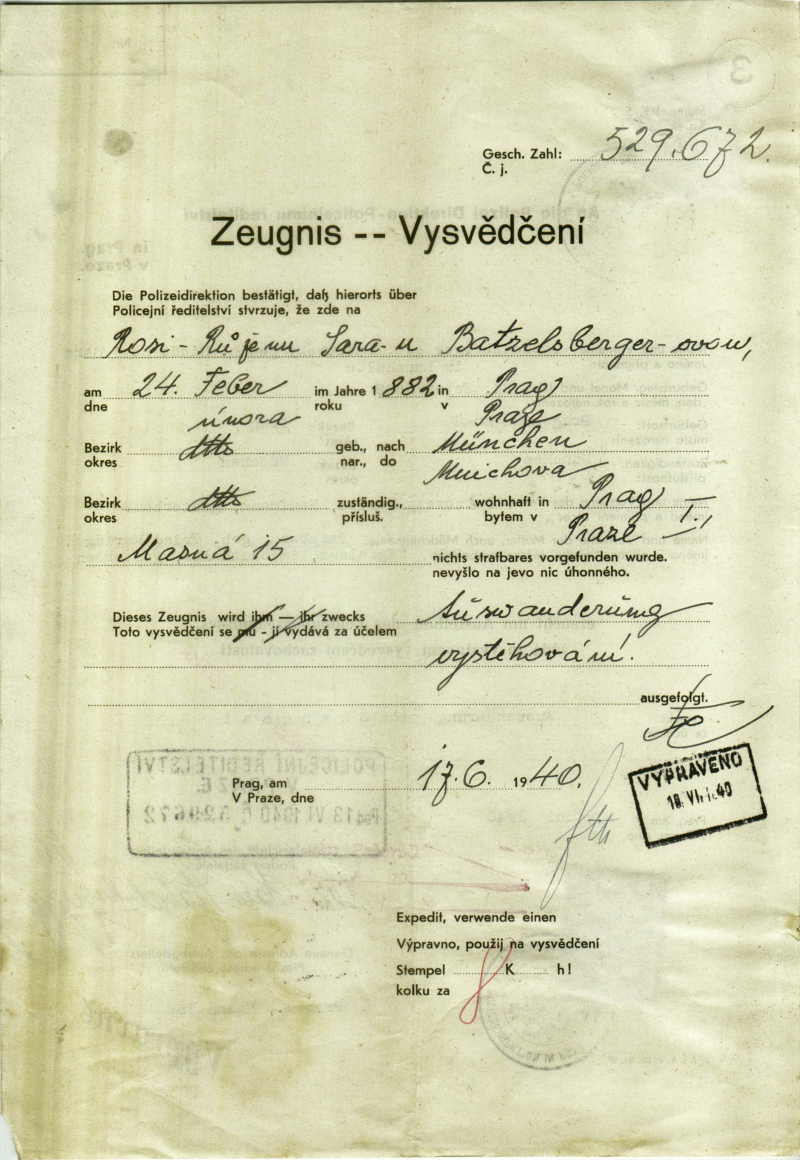 Gesch. Zahl: 529.672.
Č. j.
Zeugnis -- Vysvědčení
Die Polizeidirektion bestätigt, daß hierorts über
Policejní ředitelství stvrzuje, že zde na
Rosi - Růženu Sara-u Batzelsberger-ovou,
am 24. Feber im Jahre 1 882 in Prag
dne února roku v Praze
Bezirk dtto geb., nach München
okres nar., do Mnichova
Bezirk dtto zuständig., wohnhaft in Prag I.,
okres přísluš. bytem v Praze
Masná 15 nichts strafbares vorgefunden wurde.
nevyšlo na jevo nic úhonného.
Dieses Zeugnis wird ihm — ihr zwecks Auswanderung
Toto vysvědčení se mu - jí vydává za účelem
vystěhování.
ausgefolgt.
Prag, am 17.6. 1940.
V Praze, dne
VYPRAVENO
18. VI. 40
POLICEJNÍ ŘEDITELSTVÍ
Expedit, verwende einen
Výpravno, použij na vysvědčení
Stempel 8 K h!
kolku za
3